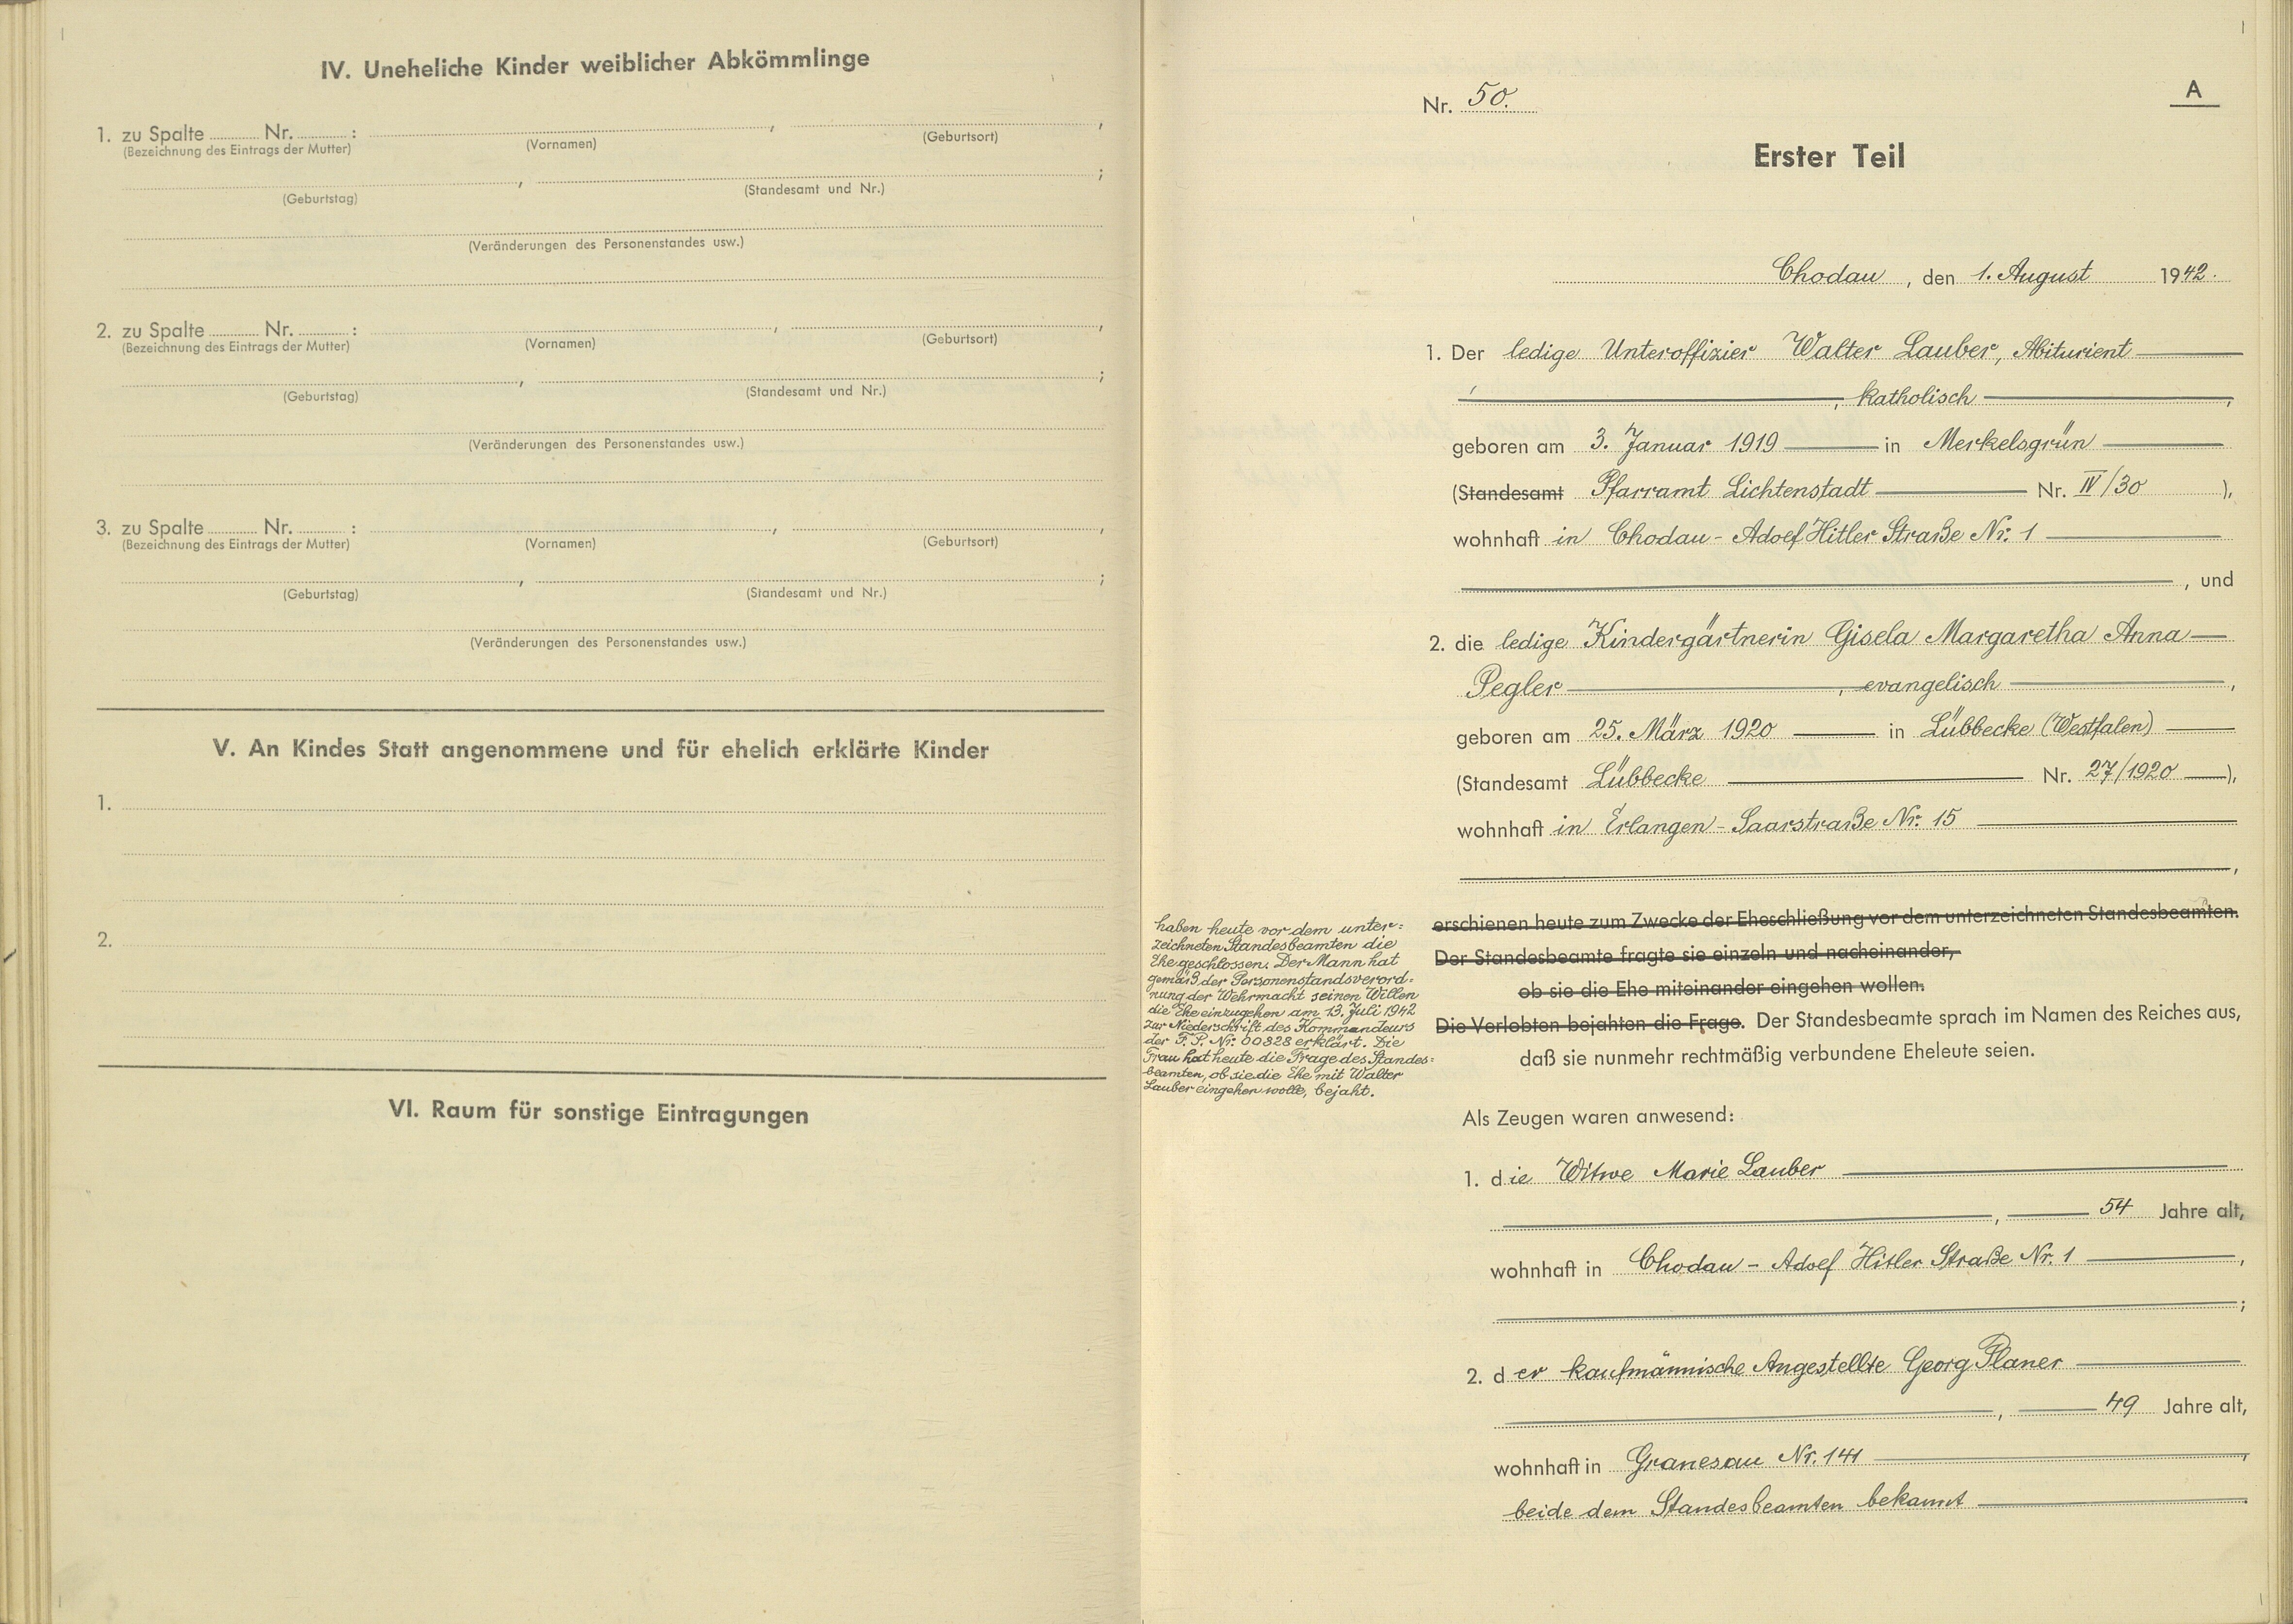 IV. Uneheliche Kinder weiblicher Abkömmlinge
1. zu Spalte ........ Nr. ........ : , ,
(Bezeichnung des Eintrags der Mutter) (Vornamen) (Geburtsort)
, ;
(Geburtstag) (Standesamt und Nr.)
(Veränderungen des Personenstandes usw.)
2. zu Spalte ........ Nr. ........ : , ,
(Bezeichnung des Eintrags der Mutter) (Vornamen) (Geburtsort)
, ;
(Geburtstag) (Standesamt und Nr.)
(Veränderungen des Personenstandes usw.)
3. zu Spalte ........ Nr. ........ : , ,
(Bezeichnung des Eintrags der Mutter) (Vornamen) (Geburtsort)
, ;
(Geburtstag) (Standesamt und Nr.)
(Veränderungen des Personenstandes usw.)
V. An Kindes Statt angenommene und für ehelich erklärte Kinder
1.
2.
VI. Raum für sonstige Eintragungen
Nr. 50.
A
Erster Teil
Chodau, den 1. August 1942.
1. Der ledige Unteroffizier Walter Lauber, Abiturient
, katholisch ,
geboren am 3. Januar 1919 in Merkelsgrün
(Standesamt Pfarramt Lichtenstadt Nr. IV/30 ),
wohnhaft in Chodau - Adolf Hitler Straße Nr. 1
, und
2. die ledige Kindergärtnerin Gisela Margaretha Anna
Pegler , evangelisch ,
geboren am 25. März 1920 in Lübbecke (Westfalen)
(Standesamt Lübbecke Nr. 27/1920 ),
wohnhaft in Erlangen - Saarstraße Nr. 15
,
haben heute vor dem unter=
zeichneten Standesbeamten die
Ehe geschlossen. Der Mann hat
gemäß der Personenstandsverord=
nung der Wehrmacht seinen Willen
die Ehe einzugehen am 13. Juli 1942
zur Niederschrift des Kommandeurs
der F. P. Nr. 00828 erklärt. Die
Frau hat heute die Frage des Standes=
beamten, ob sie die Ehe mit Walter
Lauber eingehen wolle, bejaht.
erschienen heute zum Zwecke der Eheschließung vor dem unterzeichneten Standesbeamten.
Der Standesbeamte fragte sie einzeln und nacheinander,
ob sie die Ehe miteinander eingehen wollen.
Die Verlobten bejahten die Frage. Der Standesbeamte sprach im Namen des Reiches aus,
daß sie nunmehr rechtmäßig verbundene Eheleute seien.
Als Zeugen waren anwesend:
1. die Witwe Marie Lauber
, 54 Jahre alt,
wohnhaft in Chodau - Adolf Hitler Straße Nr. 1 ,
;
2. der kaufmännische Angestellte Georg Planer
, 49 Jahre alt,
wohnhaft in Granesau Nr. 141 ,
beide dem Standesbeamten bekannt .